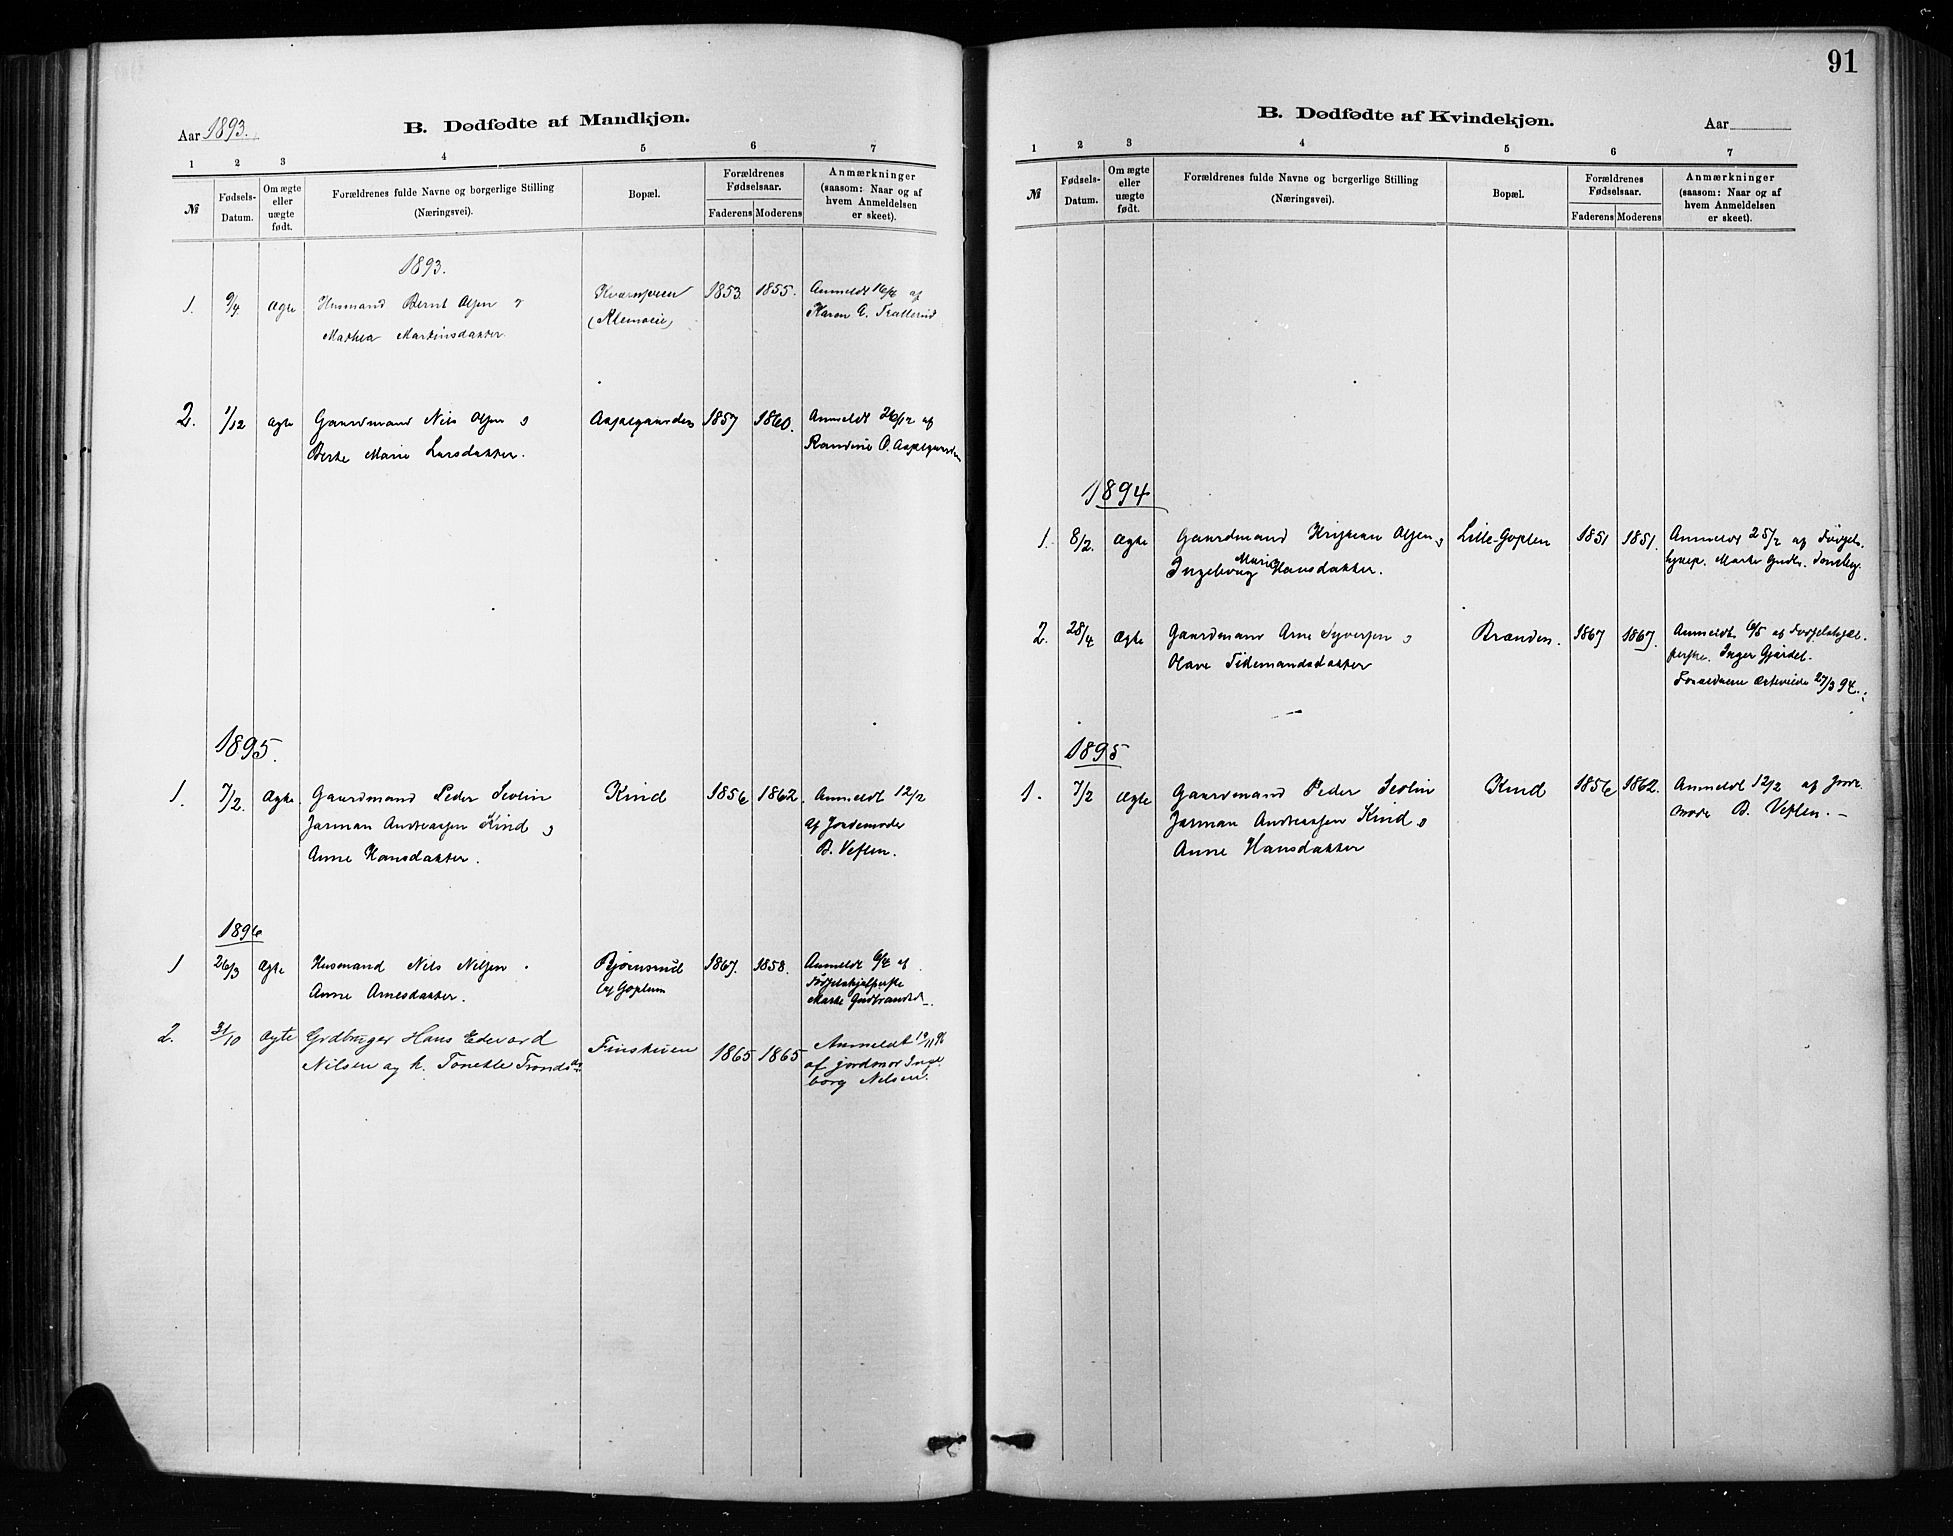 Aar 1893.
B. Dødfødte af Mandkjøn.
1 2 3 4 5 6 7
№
Fødsels-Datum.
Om ægte eller uægte født.
Forældrenes fulde Navne og borgerlige Stilling
(Næringsvei).
Bopæl.
Forældrenes Fødselsaar.
Faderens Moderens
Anmærkninger
(saasom: Naar og af
hvem Anmeldelsen
er skeet).
1893.
1. 9/4 Ægte Husmand Bernt Olsen 1853. 1855. Anmeldt 16/4 af
Mathea Martinsdatter. Karen G.
2. 1/12 Ægte Gaardmand Nils Olsen og Aaslegaarden 1857 1860. Anmeldt 26/12 af
Berte Marie Larsdatter. Randine O.
1895.
1. 7/2. Ægte. Gaardmand Peder Severin Kind 1856 1862. Anmeldt 12/2
Jarman Andreassen Kind og af Jordemoder
Anne Hansdatter. B. Veflen.
1896
1 26/3 Ægte Husmand Nils Nilsen Bjørnsrud 1867. 1858. Anmeldt 6/4 af
Anne Arnesdatter. af Goplum Fødselshjælperske
Marte Gudbrandsd.
2. 31/10 Ægte Grdbruger Hans Edvard 1865 1865 Anmeldt
Nilsen og h. Tonette Tronds dtr. af jordmor Inge
borg Nilsen.
91
B. Dødfødte af Kvindekjøn.
Aar
1 2 3 4 5 6 7
№
Fødsels-Datum.
Om ægte eller uægte født.
Forældrenes fulde Navne og borgerlige Stilling
(Næringsvei).
Bopæl.
Forældrenes Fødselsaar.
Faderens Moderens
Anmærkninger
(saasom: Naar og af
hvem Anmeldelsen
er skeet).
1894
1. 8/2. Ægte Gaardmand Kristian Olsen og Lille-Goplen 1851 1851. Anmeldt 25/2 af Fødsels-
Ingeborg Marie Hansdatter. hjælp. Marte Gudbr. Tonsberg.
2. 28/4 Ægte Gaardmand Arne Syversen og Brænden. 1867 1867. Anmeldt 6/5 af Fødselshjæl-
Olave Tidemandsdatter perske. Inger Gjardel.
Forældrene ægteviede 27/3 94.
1895
1. 7/2 Ægte Gaardmand Peder Severin Kind 1856 1862. Anmeldt 12/2 af Jorde
Jarman Andreassen Kind og moder B. Veflen. –
Anne Hansdatter